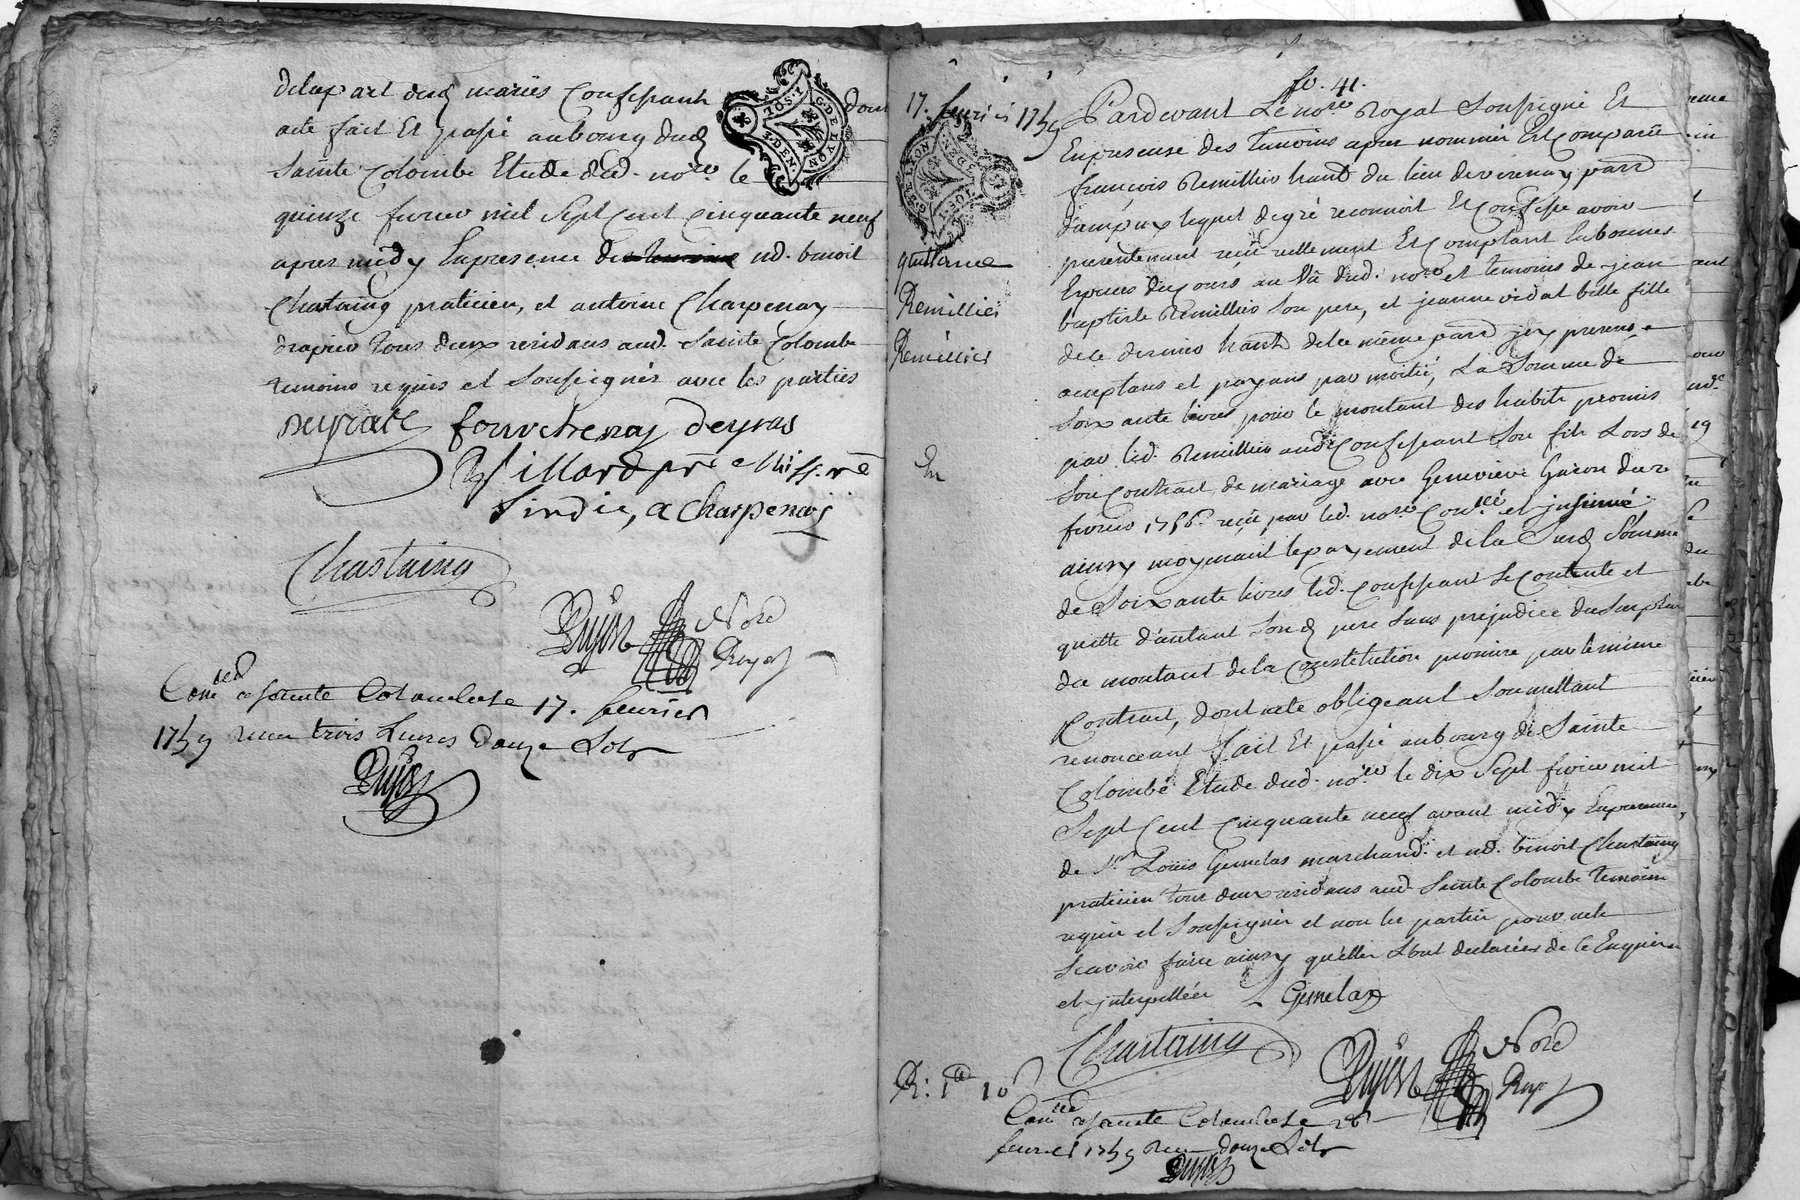 delapart desd mariés Confessant dont
acte fait Et passé aubourg dud
Sainte Colombe Etude dud. nore. le
quinze fevrier mil Sept Cent Cinquante neuf
apres midy Enpresence des temoins md. benoit
Chastaing praticien, et antoine Charpenay
drapier tous deux residans aud. Sainte Colombe
temoins requis et Soussignés avec les parties
fourchenay Deyras
Sindic, a Charpenay
Chastaing
Dujast Nore
Royal
Conlé a Sainte Colombe le 17. feuvrier
1759 receu trois Livres douze Sols
Dujast
G. DE LYON
1. SOL. 3. DEN.
fo. 41.
17. feuvrier 1759
quittance
Remillier
Remillier
Pardevant Le nore Royal Soussigné Et
Enpresence des temoins apres nommés Est Comparu
françois Remillier habt du lieu deverenay parr
dampuix lequel degré reconnoit Et Confesse avoir
presentement reçu reellement Et Comptant En bonnes
Especes du Cours au Vû dud. nore et temoins de jean
baptiste Remillier Son pere, et jeanne vidal belle fille
dele dernier habts dela même parr jcy presens
aceptans et payans par moitié, La Somme de
Soixante livres pour le montant des habits promis
par led. Remillier aud. Confessant Son fils Lors de
Son Contrat de mariage avec Genevieve Gacon du 2
fevrier 1756. reçu par led. nore Conlé et jnsinué
ainsy moyenant lepayement dela Susd Somme
de Soixante livres led. Confessant Se Contente et
quitte d'autant Sond pere Sans prejudice du Surplus
du montant dela Constitution promise par le même
Contrat, dont acte obligeant Soumettant
renonceant fait Et passé aubourg de Sainte
Colombe Etude dud. nore le dix Sept fevrier mil
Sept Cent Cinquante neuf avant midy Enpresence
de Sr. Louis Gemelas marchand. et md. benoit Chastaing
praticien tous deux residans aud. Sainte Colombe temoins
requis et Soussignés et non les parties pour ne le
Scavoir faire ainsy qu'elles Ont declarées de ce Enquises
et jnterpellées L Gemelas
Chastaing
Dujast Nore
Royal
Conlé a Sainte Colombe le 28
feuvrier 1759 receu douze Sols
Dujast